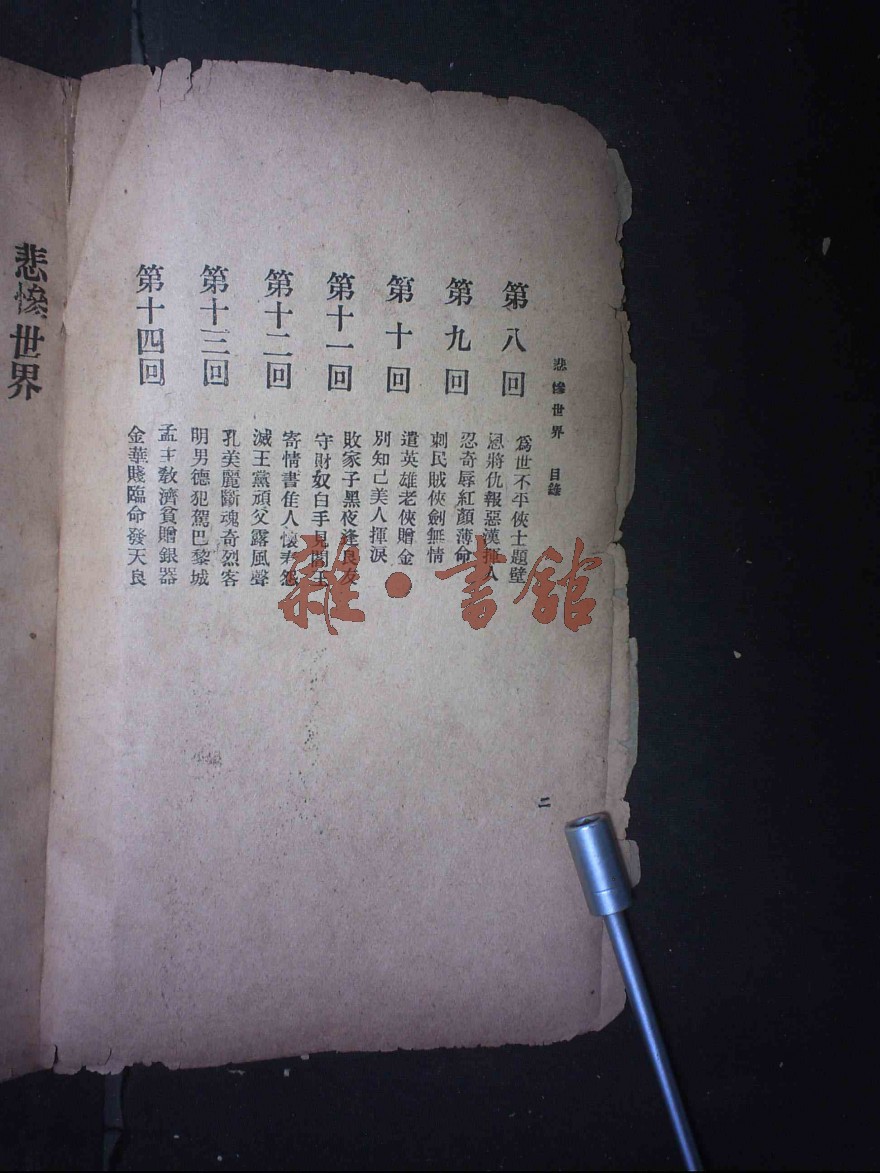 悲慘世界 目錄
第八回
爲世不平俠士題壁
恩將仇報惡漢人
第九回
忍奇辱紅顏薄命
刺民賊俠劍無情
第十回
遣英雄老俠贈金
別知己美人揮淚
第十一回
敗家子黑夜逢良友
守財奴白手見閻王
第十二回
寄情書佳人懷春怨
滅王黨頑父露風聲
第十三回
孔美麗斷魂奇烈客
明男德犯駕巴黎城
第十四回
孟主敎濟貧贈銀器
金華賤臨命發天良
二
悲慘世界
雜·書館